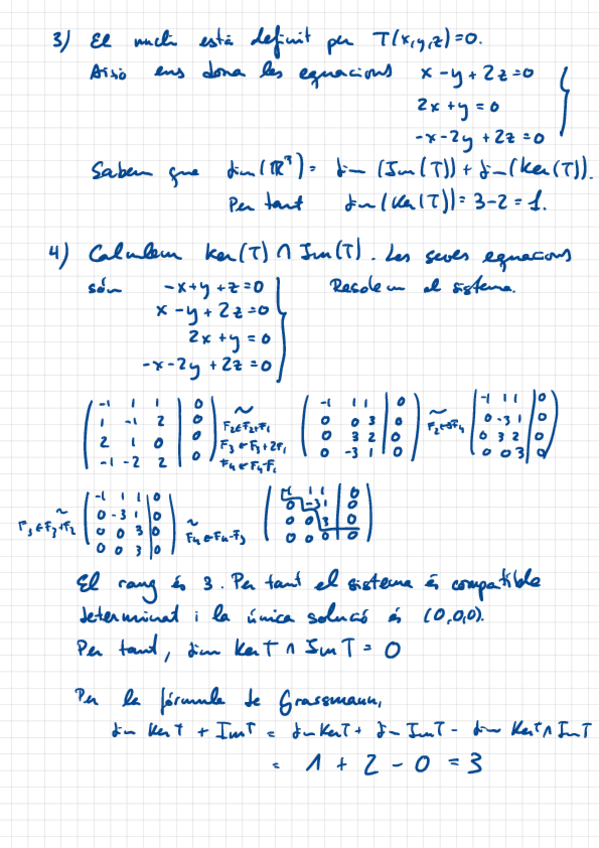 3) El nucli està definit per T(x,y,z)=0.
Això ens dona les equacions x - y + 2z = 0
2x + y = 0
-x - 2y + 2z = 0
Sabem que dim(ℝ³) = dim (Im(T)) + dim(Ker(T)).
Per tant dim(Ker(T)) = 3-2 = 1.
4) Calculem Ker(T) ∩ Im(T). Les seves equacions
són -x+y+z=0 Resolem el sistema.
x - y + 2z = 0
2x + y = 0
-x - 2y + 2z = 0
-1 1 1 | 0 ~ -1 1 1 | 0 ~ -1 1 1 | 0
1 -1 2 | 0 F2←F2+F1 0 0 3 | 0 F2↔F4 0 -3 1 | 0
2 1 0 | 0 F3←F3+2F1 0 3 2 | 0 0 3 2 | 0
-1 -2 2 | 0 F4←F4-F1 0 -3 1 | 0 0 0 3 | 0
~ -1 1 1 | 0 ~ -1 1 1 | 0
F3←F3+F2 0 -3 1 | 0 F4←F4-F3 0 -3 1 | 0
0 0 3 | 0 0 0 3 | 0
0 0 3 | 0 0 0 0 | 0
El rang és 3. Per tant el sistema és compatible
determinat i la única solució és (0,0,0).
Per tant, dim KerT ∩ ImT = 0
Per la fórmula de Grassmann,
dim KerT + ImT = dim KerT + dim ImT - dim KerT ∩ ImT
= 1 + 2 - 0 = 3